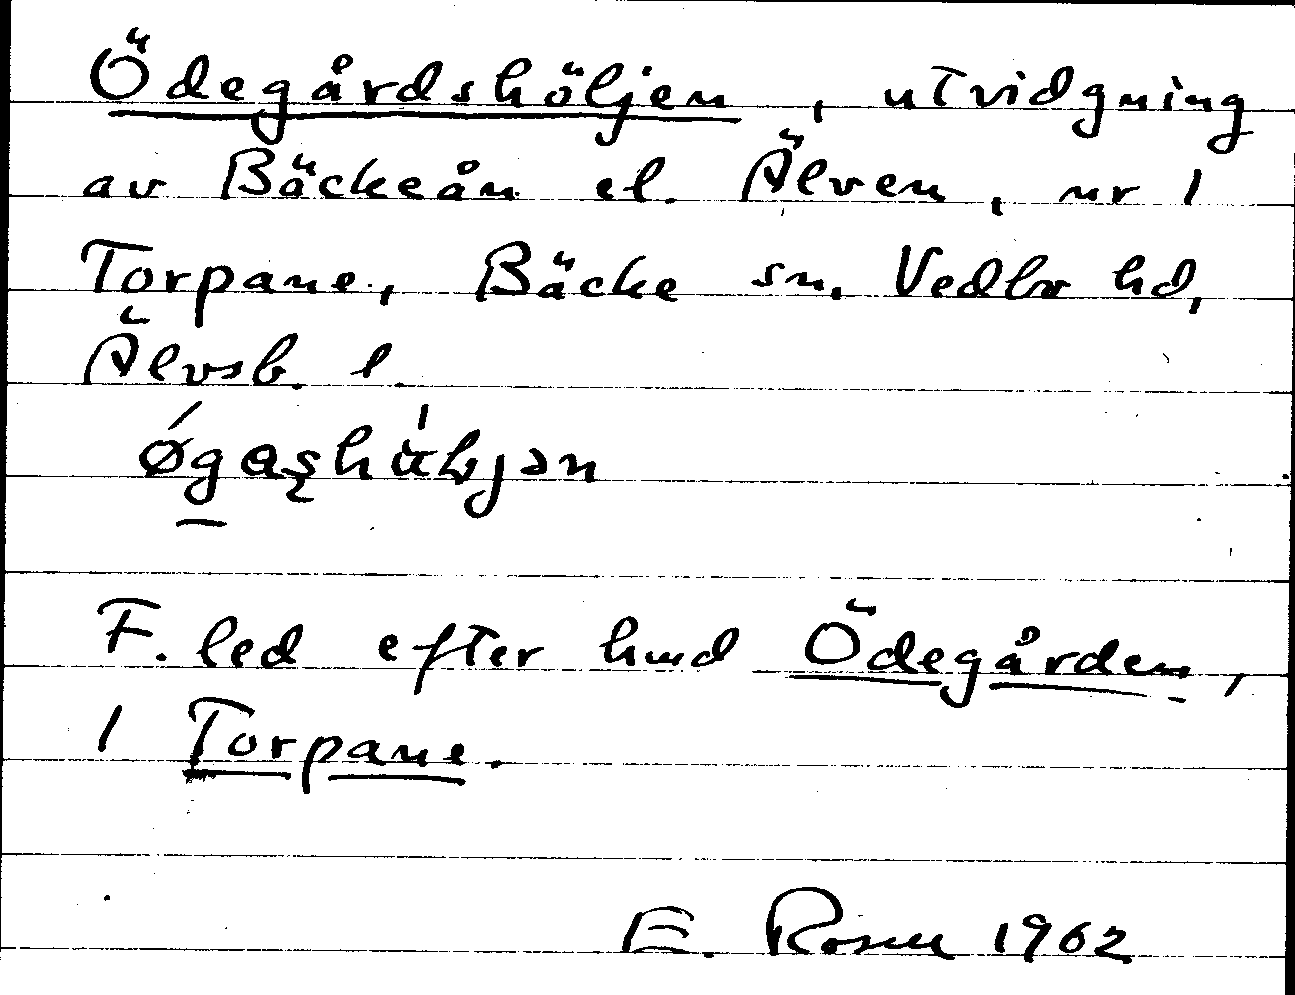 Ödegårdshöljen, utvidgning
av Bäckeån el. Älven, nr 1
Torpane, Bäcke sn. Vedbo hd,
Älvsb. l.
F. led efter hmd Ödegården,
1 Torpane.
E. Rosen 1962